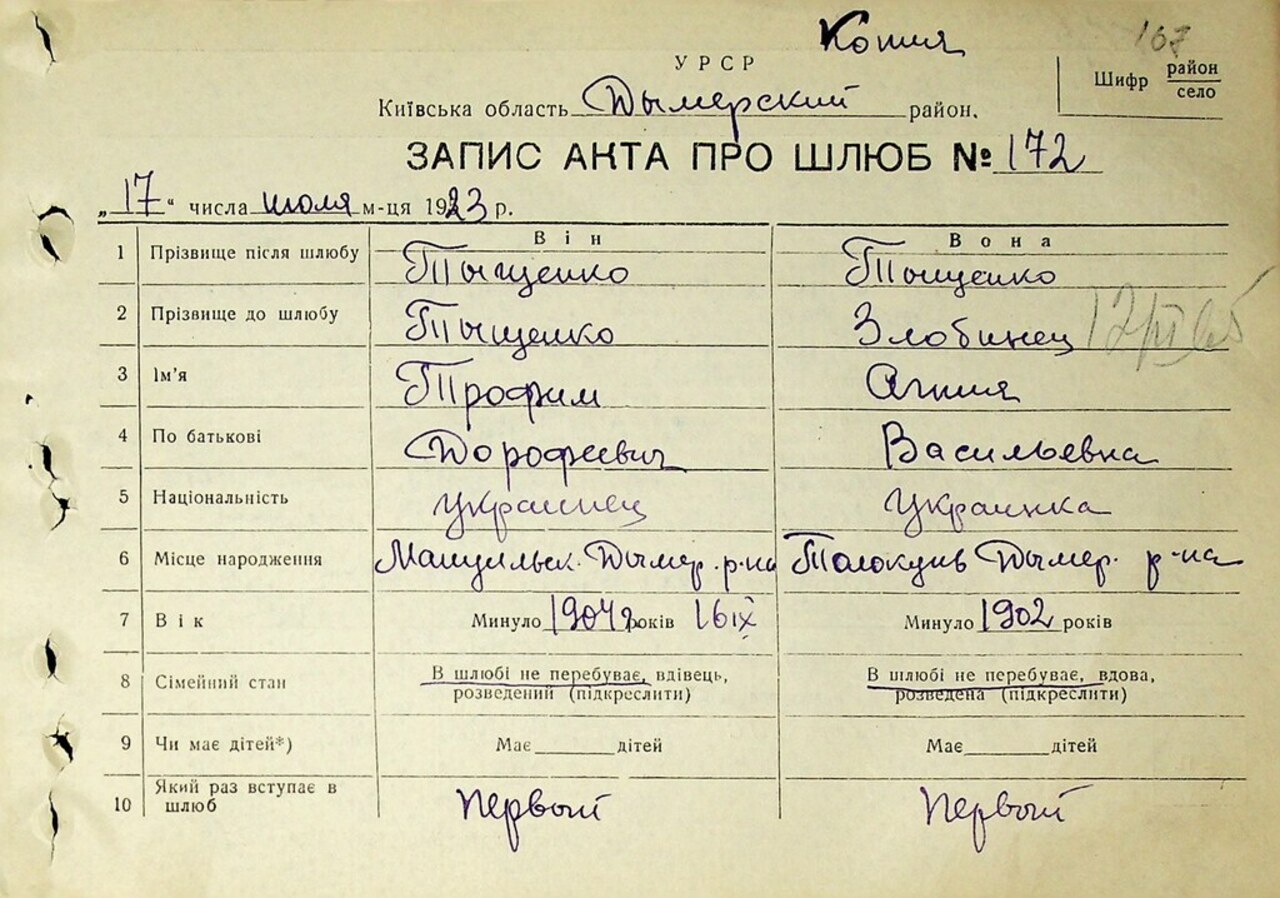 Копия
167
УРСР
Шифр район
село
Київська область Дымерский район.
ЗАПИС АКТА ПРО ШЛЮБ № 172
„17“ числа июля м-ця 1923 р.
Він Вона
1 Прізвище після шлюбу Тыщенко Тыщенко
2 Прізвище до шлюбу Тыщенко Злобинец
3 Ім’я Трофим Агния
4 По батькові Дорофеевич Васильевна
5 Національність Украинец Украинка
6 Місце народження Дымер. р-на Толокунь Дымер. р-на
7 Вік Минуло років 16 IX Минуло 1902 років
8 Сімейний стан В шлюбі не перебуває, вдівець, В шлюбі не перебуває, вдова,
розведений (підкреслити) розведена (підкреслити)
9 Чи має дітей*) Має дітей Має дітей
10 Який раз вступає в
шлюб Первый Первый